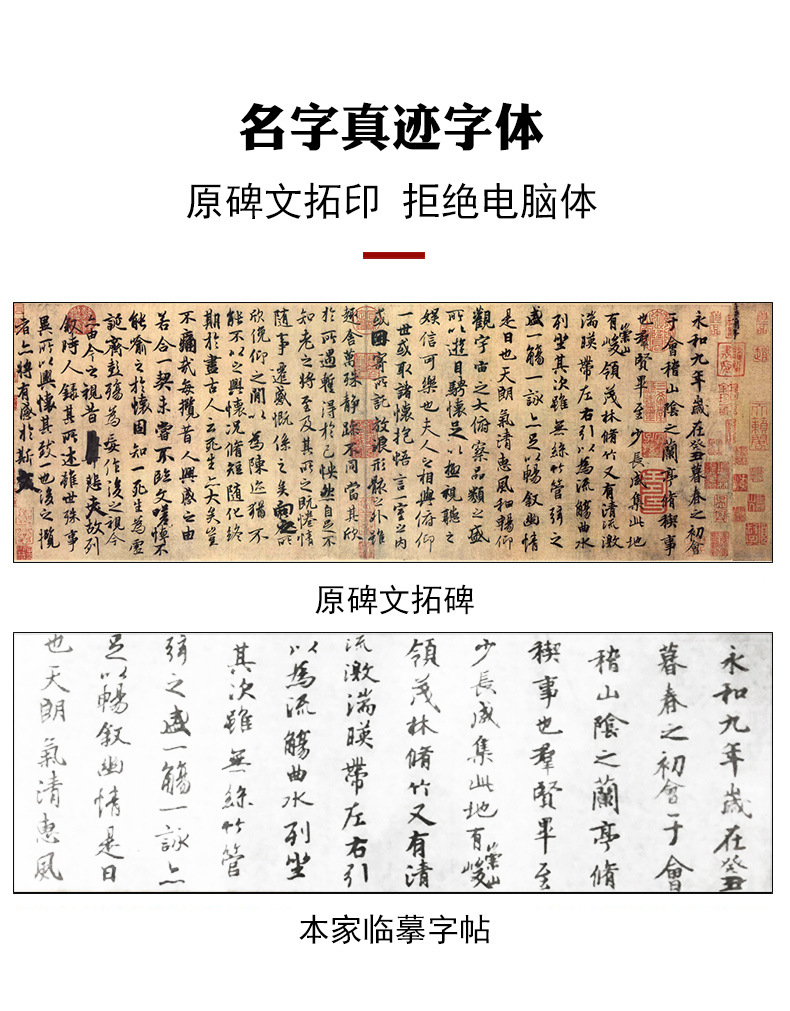 名字真迹字体
原碑文拓印 拒绝电脑体
永和九年歲在癸丑暮春之初會
于會稽山陰之蘭亭脩稧事
也群賢畢至少長咸集此地
有崇山峻領茂林脩竹又有清流激
湍暎帶左右引以為流觴曲水
列坐其次雖無絲竹管弦之
盛一觴一詠亦足以暢叙幽情
是日也天朗氣清惠風和暢仰
觀宇宙之大俯察品類之盛
所以遊目騁懷足以極視聽之
娛信可樂也夫人之相與俯仰
一世或取諸懷抱悟言一室之內
或因寄所託放浪形骸之外雖
趣舍萬殊静躁不同當其欣
於所遇暫得於己怏然自足不
知老之將至及其所之既惓情
隨事遷感慨係之矣向之所
欣俛仰之間以為陳迹猶不
能不以之興懷況脩短隨化終
期於盡古人云死生亦大矣豈
不痛哉每攬昔人興感之由
若合一契未嘗不臨文嗟悼不
能喻之於懷固知一死生為虛
誕齊彭殤為妄作後之視今
亦由今之視昔悲夫故列
叙時人錄其所述雖世殊事
異所以興懷其致一也後之攬
者亦將有感於斯文
原碑文拓碑
永和九年歲在癸丑
暮春之初會于會
稽山陰之蘭亭脩
稧事也羣賢畢至
少長咸集此地有崇山峻
領茂林脩竹又有清
流激湍暎帶左右引
以為流觴曲水列坐
其次雖無絲竹管
弦之盛一觴一詠亦
足以暢叙幽情是日
也天朗氣清惠風
本家临摹字帖